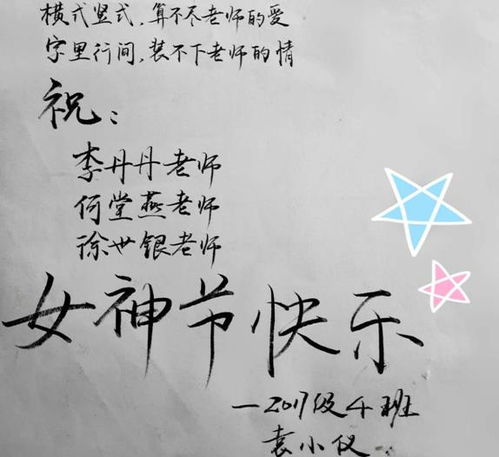 横式竖式,算不尽老师的爱
字里行间,装不下老师的情
祝:
李丹丹老师
何堂燕老师
徐世银老师
女神节快乐
—2017级4班
袁小仪